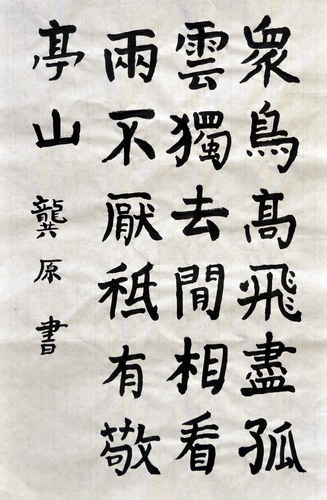 眾鳥高飛盡孤
雲獨去閒相看
兩不厭祗有敬
亭山
龔原書